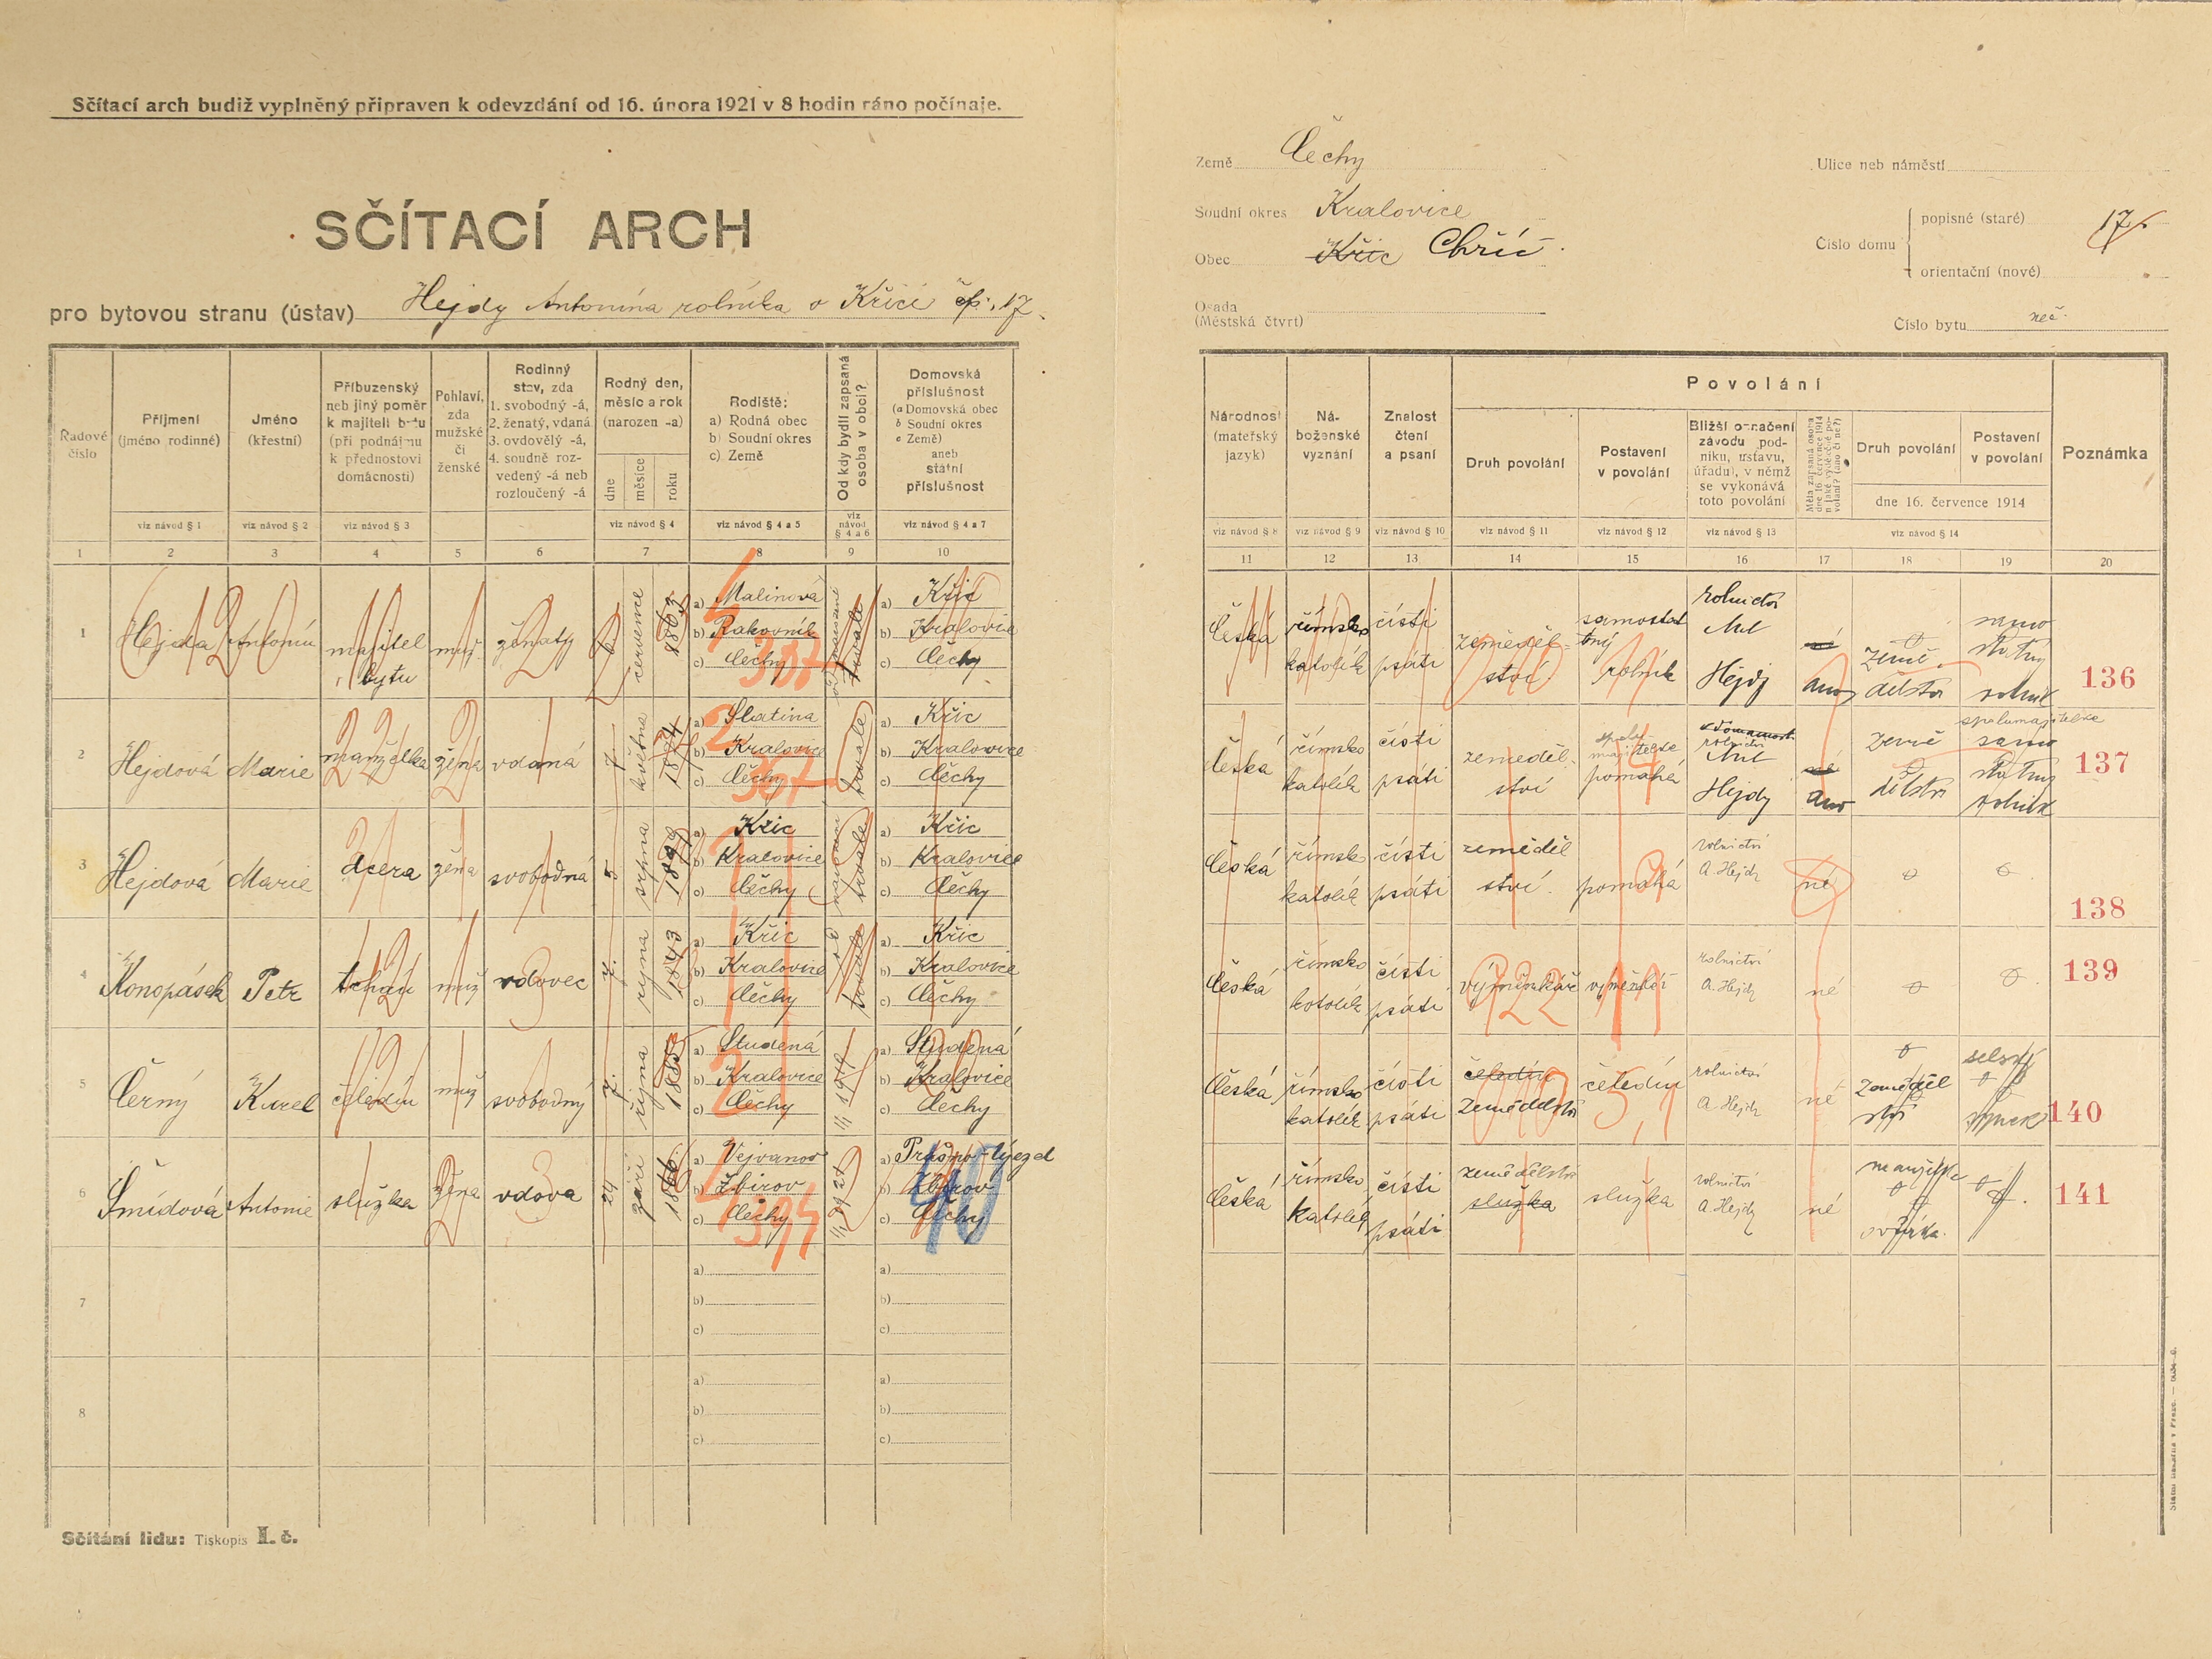 Sčítací arch budiž vyplněný připraven k odevzdání od 16. února 1921 v 8 hodin ráno počínaje.
SČÍTACÍ ARCH
pro bytovou stranu (ústav) Hejdy Antonína rolníka v Křiči čp. 17.
Země Čechy
Soudní okres Kralovice
Obec Křic Chříč.
Osada
(Městská čtvrt)
Ulice neb náměstí
Číslo domu
popisné (staré) 17
orientační (nové)
Číslo bytu
Řadové číslo
Příjmení (jméno rodinné)
Jméno (křestní)
Příbuzenský neb jiný poměr k majiteli bytu (při podnájmu k přednostovi domácnosti)
Pohlaví, zda mužské či ženské
Rodinný stav, zda 1. svobodný -á, 2. ženatý, vdaná 3. ovdovělý -á, 4. soudně rozvedený -á neb rozloučený -á
Rodný den, měsíc a rok (narozen -a)
dne měsíce roku
Rodiště: a) Rodná obec b) Soudní okres c) Země
Od kdy bydlí zapsaná osoba v obci?
Domovská příslušnost (a Domovská obec b Soudní okres c Země) aneb státní příslušnost
viz návod § 1 viz návod § 2 viz návod § 3 viz návod § 4 viz návod § 4 a 5 viz návod § 4 a 6 viz návod § 4 a 7
1 2 3 4 5 6 7 8 9 10
Národnost (mateřský jazyk)
Náboženské vyznání
Znalost čtení a psaní
Povolání
Druh povolání
Postavení v povolání
Bližší označení závodu podniku, ústavu, úřadu), v němž se vykonává toto povolání
Měla zapsaná osoba dne 16. července 1914 nějaké výdělečné povolání? (ano či ne?)
Druh povolání
Postavení v povolání
dne 16. července 1914
Poznámka
viz návod § 8 viz návod § 9 viz návod § 10 viz návod § 11 viz návod § 12 viz návod § 13 viz návod § 14
11 12 13 14 15 16 17 18 19 20
1 Hejda Antonín majitel bytu muž ženatý července 1863 a) Malinová b) Rakovník c) Čechy 337 trvale a) Křic b) Kralovice c) Čechy
Česká římsko katolík čísti psáti zemědělství samostatný rolník rolnictví Ant Hejdy ano zemědělství samostatný rolník 136
2 Hejdová Marie manželka žena vdaná 7 května 1874 a) Slatina b) Kralovice c) Čechy 367 trvale a) Křic b) Kralovice c) Čechy
Česká římsko katolík čísti psáti zemědělství spolumajitelka pomáhá rolnictví Ant Hejdy ano zemědělství spolumajitelka samostatný rolník 137
3 Hejdová Marie dcera žena svobodná 5 srpna 1899 a) Křic b) Kralovice c) Čechy od narození trvale a) Křic b) Kralovice c) Čechy
Česká římsko katolík čísti psáti zemědělství pomáhá rolnictví A. Hejdy né 138
4 Konopásek Petr tchán muž vdovec 7. října 1843 a) Křic b) Kralovice c) Čechy trvale a) Křic b) Kralovice c) Čechy
Česká římsko katolík čísti psáti výměnkář výměnkář rolnictví A. Hejdy né 139
5 Černý Karel čeledín muž svobodný 7. října 1885 a) Studená b) Kralovice c) Čechy a) Studená b) Kralovice c) Čechy
Česká římsko katolík čísti psáti čeledín zemědělství čeledín rolnictví A. Hejdy né zemědělství selský 140
6 Šmídová Antonie služka žena vdova 24 září 1866 a) Vejvanov b) Zbirov c) Čechy 394 a) Újezd b) Zbirov c) Čechy 40
Česká římsko katolík čísti psáti zemědělství služka služka rolnictví A. Hejdy né manželka 141
7 a) b) c) a) b) c)
8 a) b) c) a) b) c)
Sčítání lidu: Tiskopis I. č.